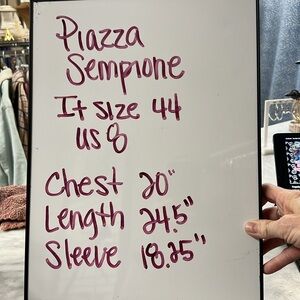 Piazza
Sempione
It size 44
US 8
Chest 20"
Length 24.5"
Sleeve 18.25"